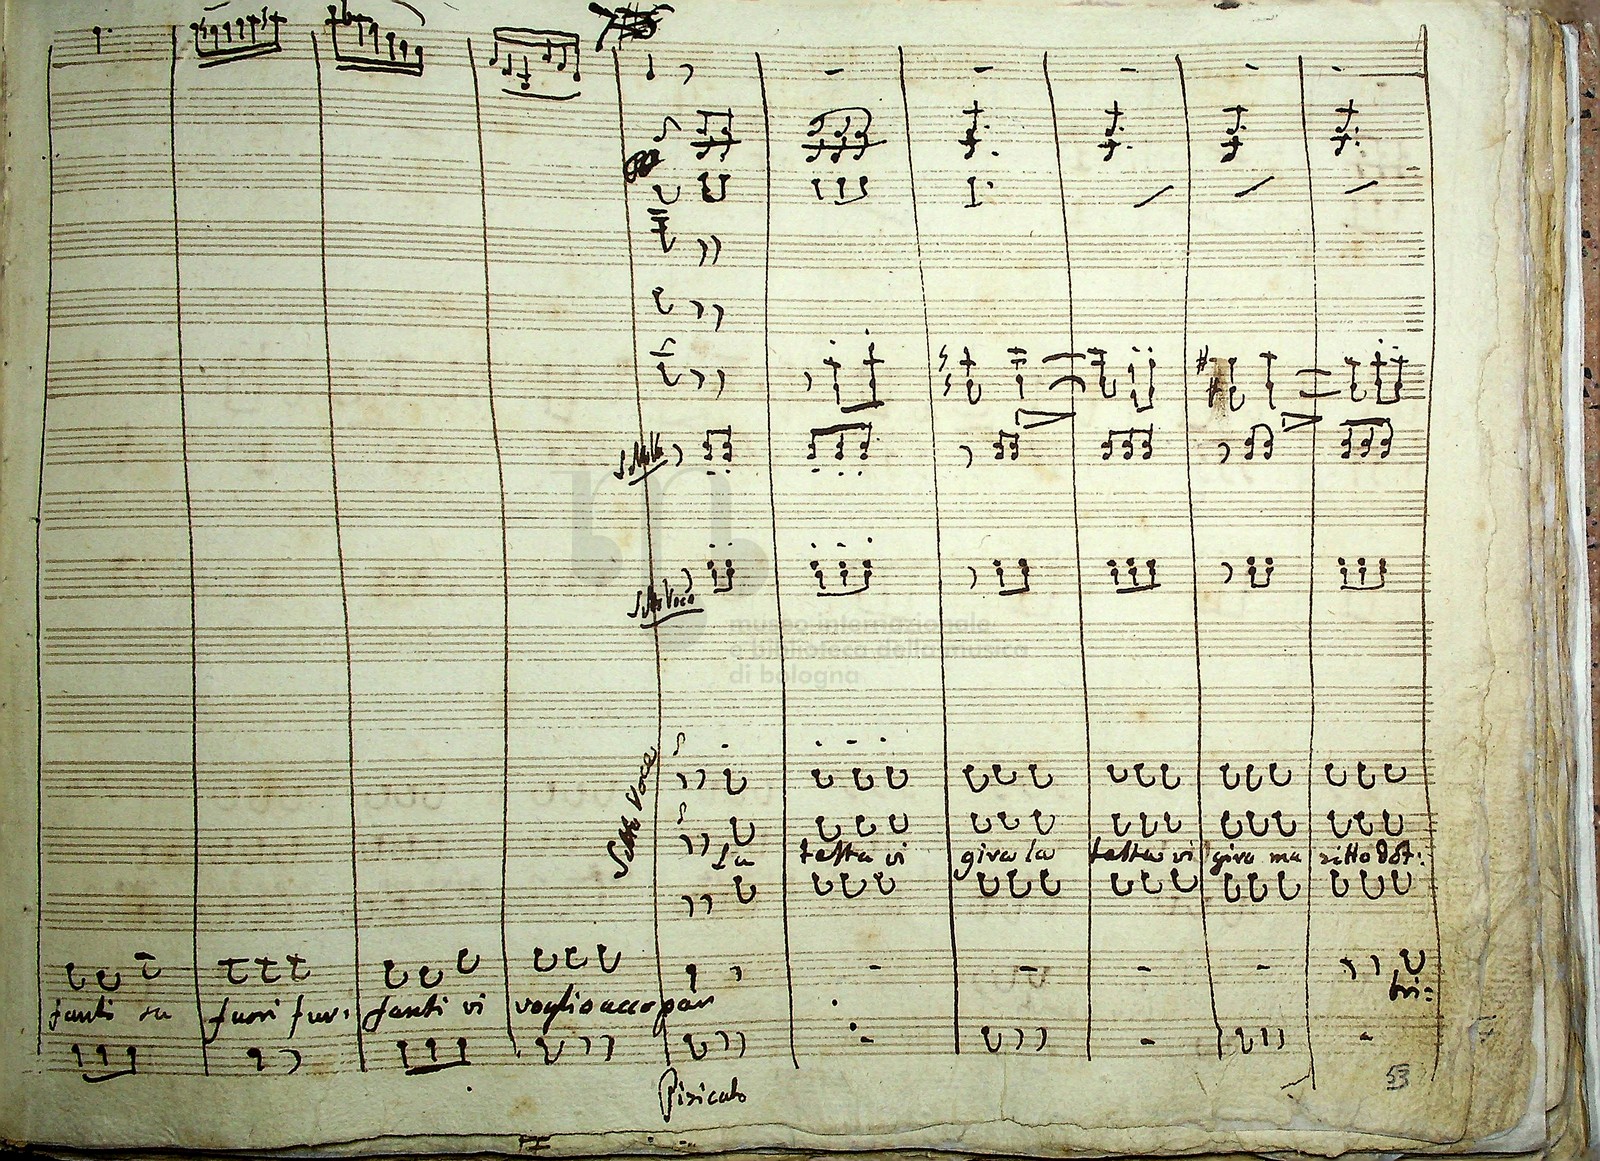 Sotto Voce
museo internazionale
e biblioteca della musica
di bologna
Sotto Voce
La testa vi gira la testa vi gira ma zitto dot:
bri:
fanti su fuori fur: fanti vi voglio accopar
Pizicato
53